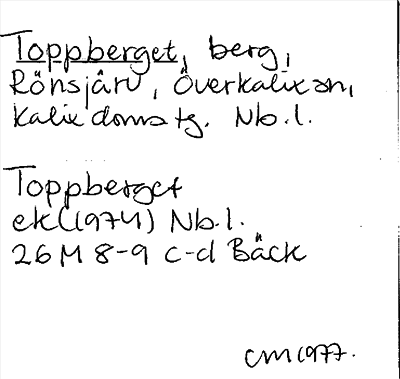 Toppberget, berg,
Rönsjärv, Överkalix sn,
Kalix doms tg. Nb. l.
Toppberget
ek (1974) Nb. l.
26 M 8-9 c-d Bäck
CM 1977.